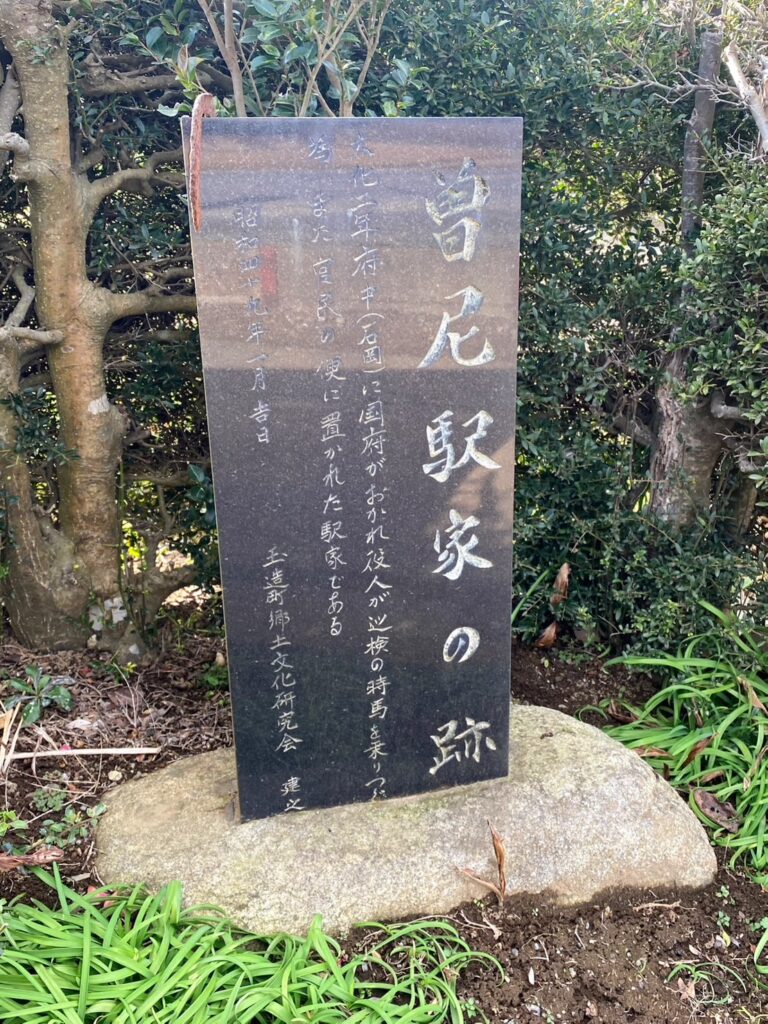 曽尼駅家の跡
大化二年府中(石岡)に国府がおかれ役人が巡検の時馬を乗りつぐ
為また官民の便に置かれた駅家である
昭和四十九年一月吉日
玉造町郷土文化研究会 建之